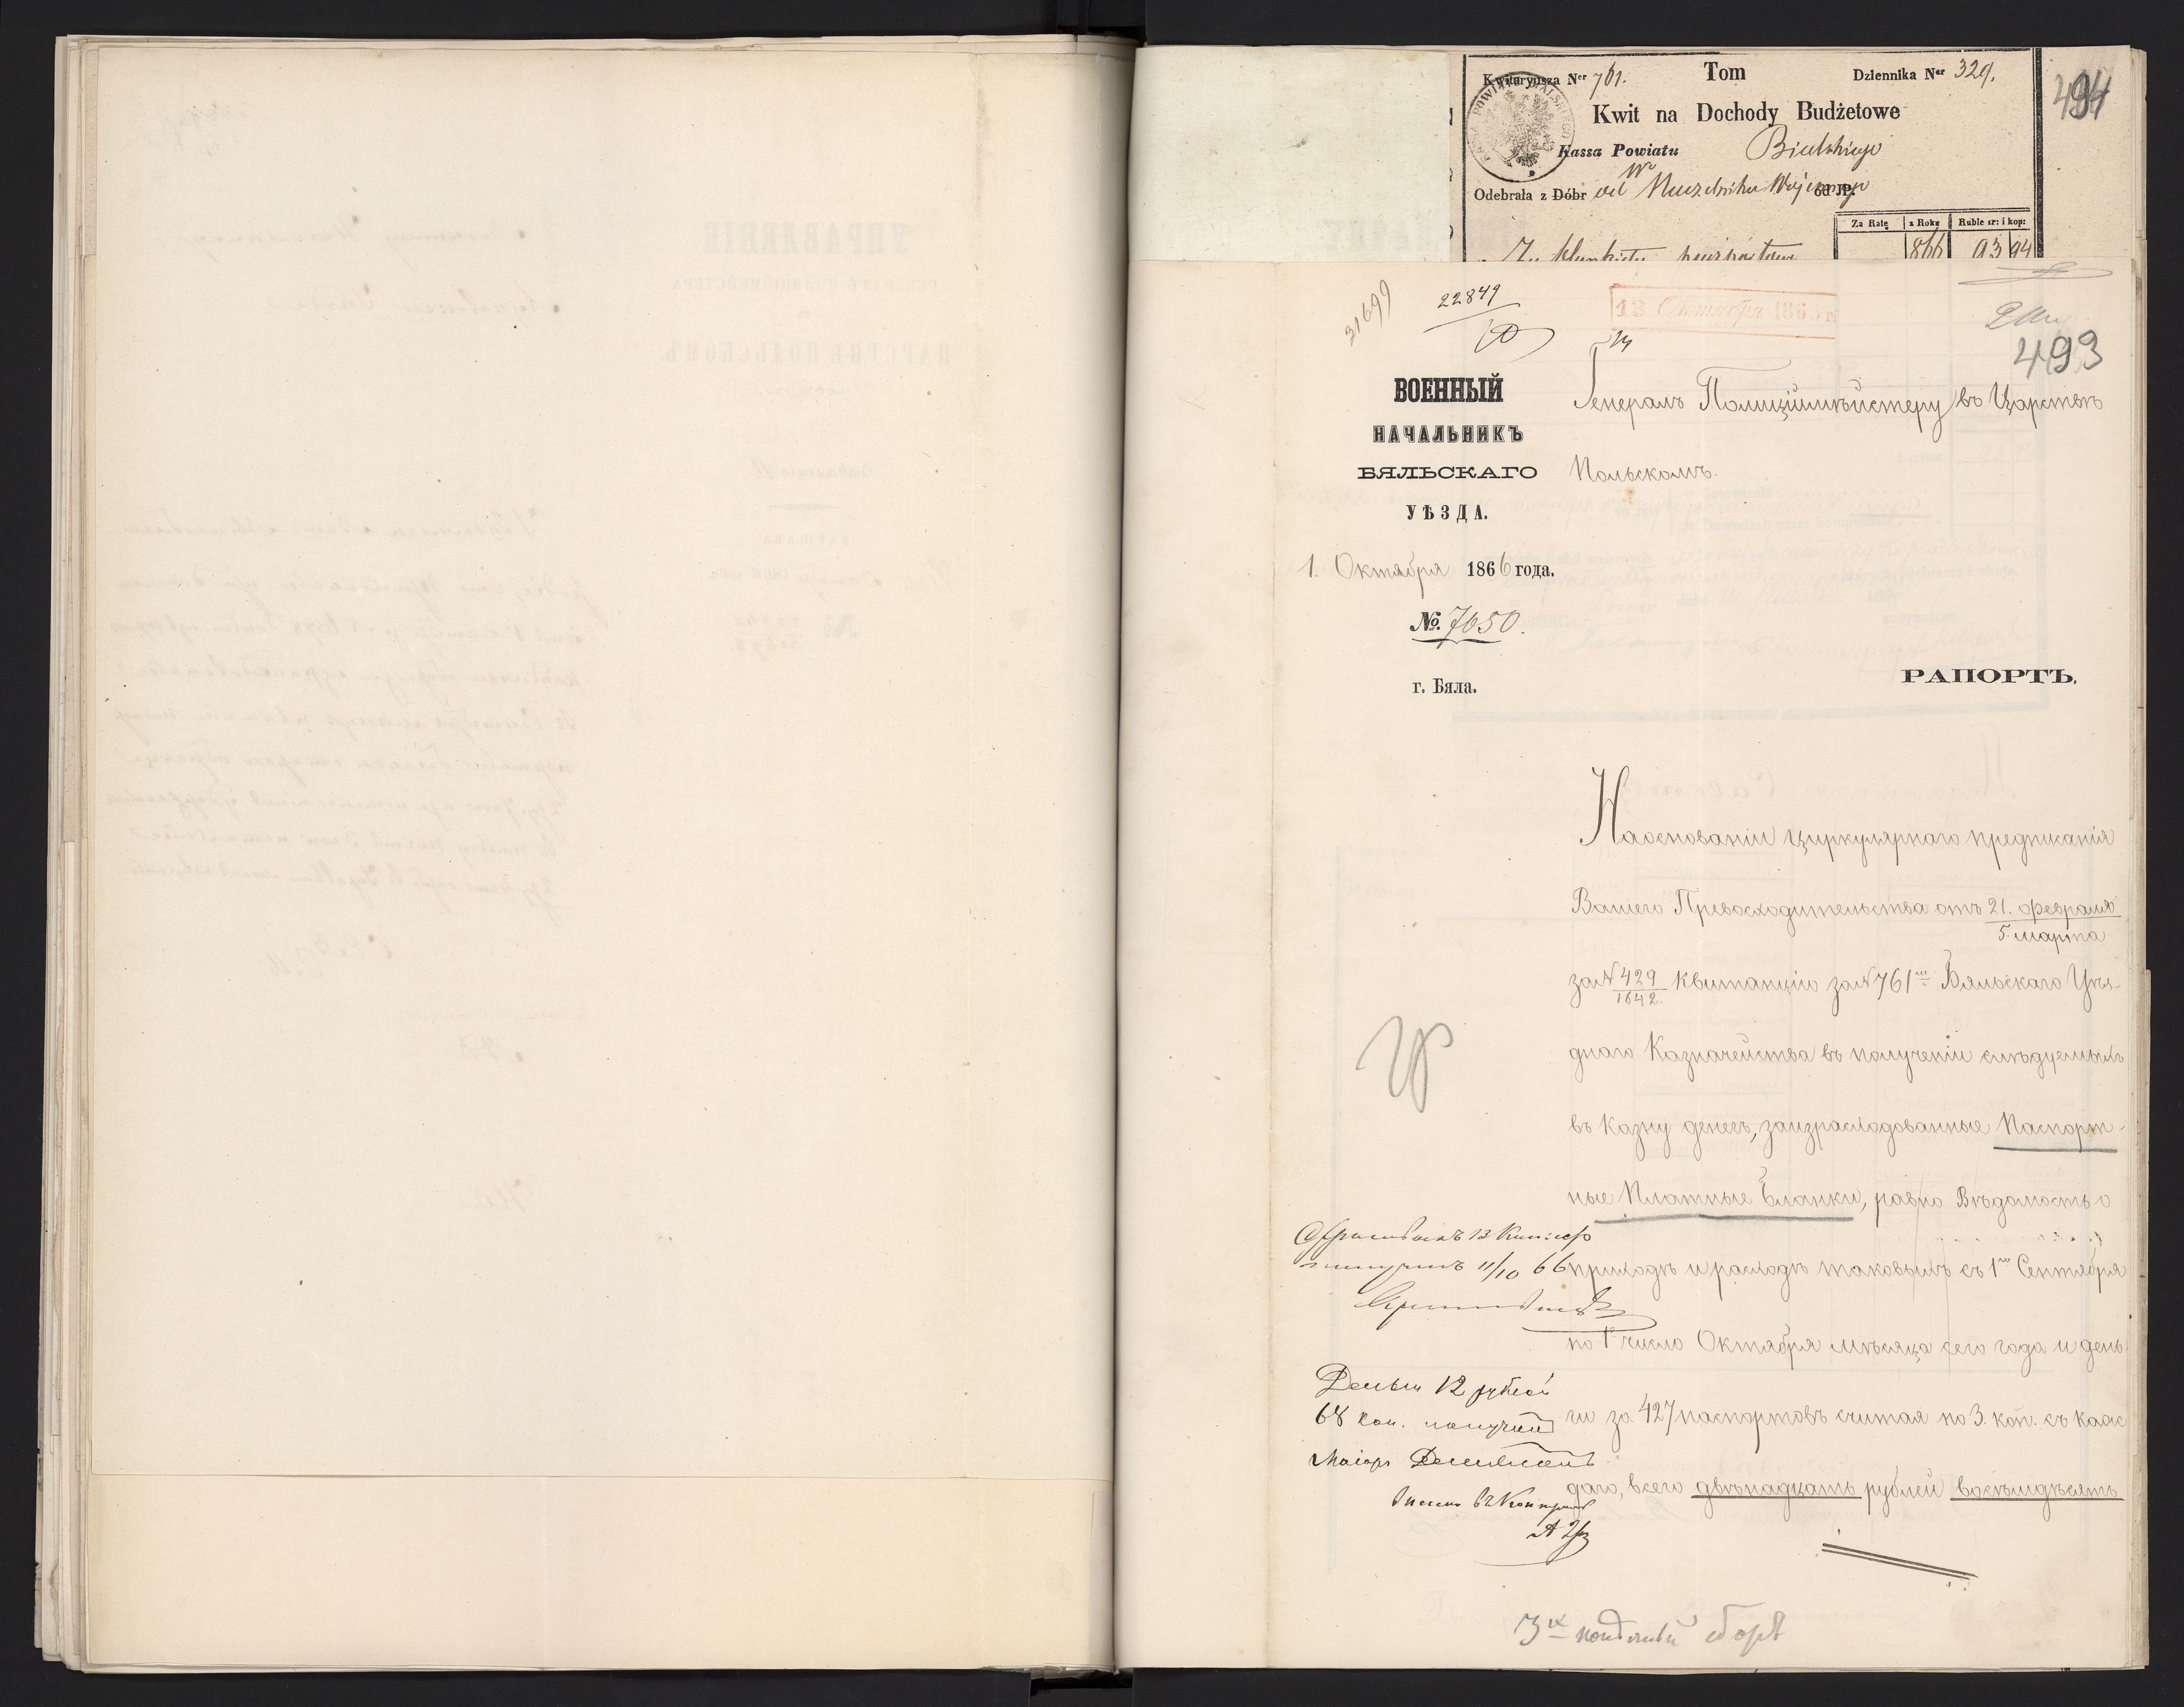 Kwitaryusza Ner 761. Tom Dziennika Ner 329.
494
Kwit na Dochody Budżetowe
Kassa Powiatu Bialskiego
Odebrała z Dóbr od Naczelnika Wojennego od JP.
Za Ratę z Roku Ruble sr: i kop:
866 93 94
31699
22849
13 Октября 1866
493
ВОЕННЫЙ
НАЧАЛЬНИКЪ
БЯЛЬСКАГО
УѢЗДА.
1. Октября 1866 года.
№ 7650.
г. Бяла.
Генералъ Полицiймѣйстеру въ Царствѣ
Польскомъ.
РАПОРТЪ.
На основанiи циркулярнаго предписанiя
Вашего Превосходительства отъ 21. февраля
5. марта
за № 429/1642. квитанцiю за № 761ш Бяльскаго Уѣз-
днаго Казначейства въ полученiи слѣдуемыхъ
въ казну денегъ, за израсходованные Паспорт-
ные Платные бланки, равно Вѣдомость о
приходѣ и расходѣ таковымъ съ 1го Сентября
по 1е число Октября мѣсяца сего года и день-
ги за 427 паспортовъ считая по 3. коп. съ каж
даго, всего двѣнадцать рублей восѣмдѣсятъ
получилъ 11/10 66
Деньги 12 рублей
68 коп. получилъ
Маiоръ
3х копѣечный сборъ